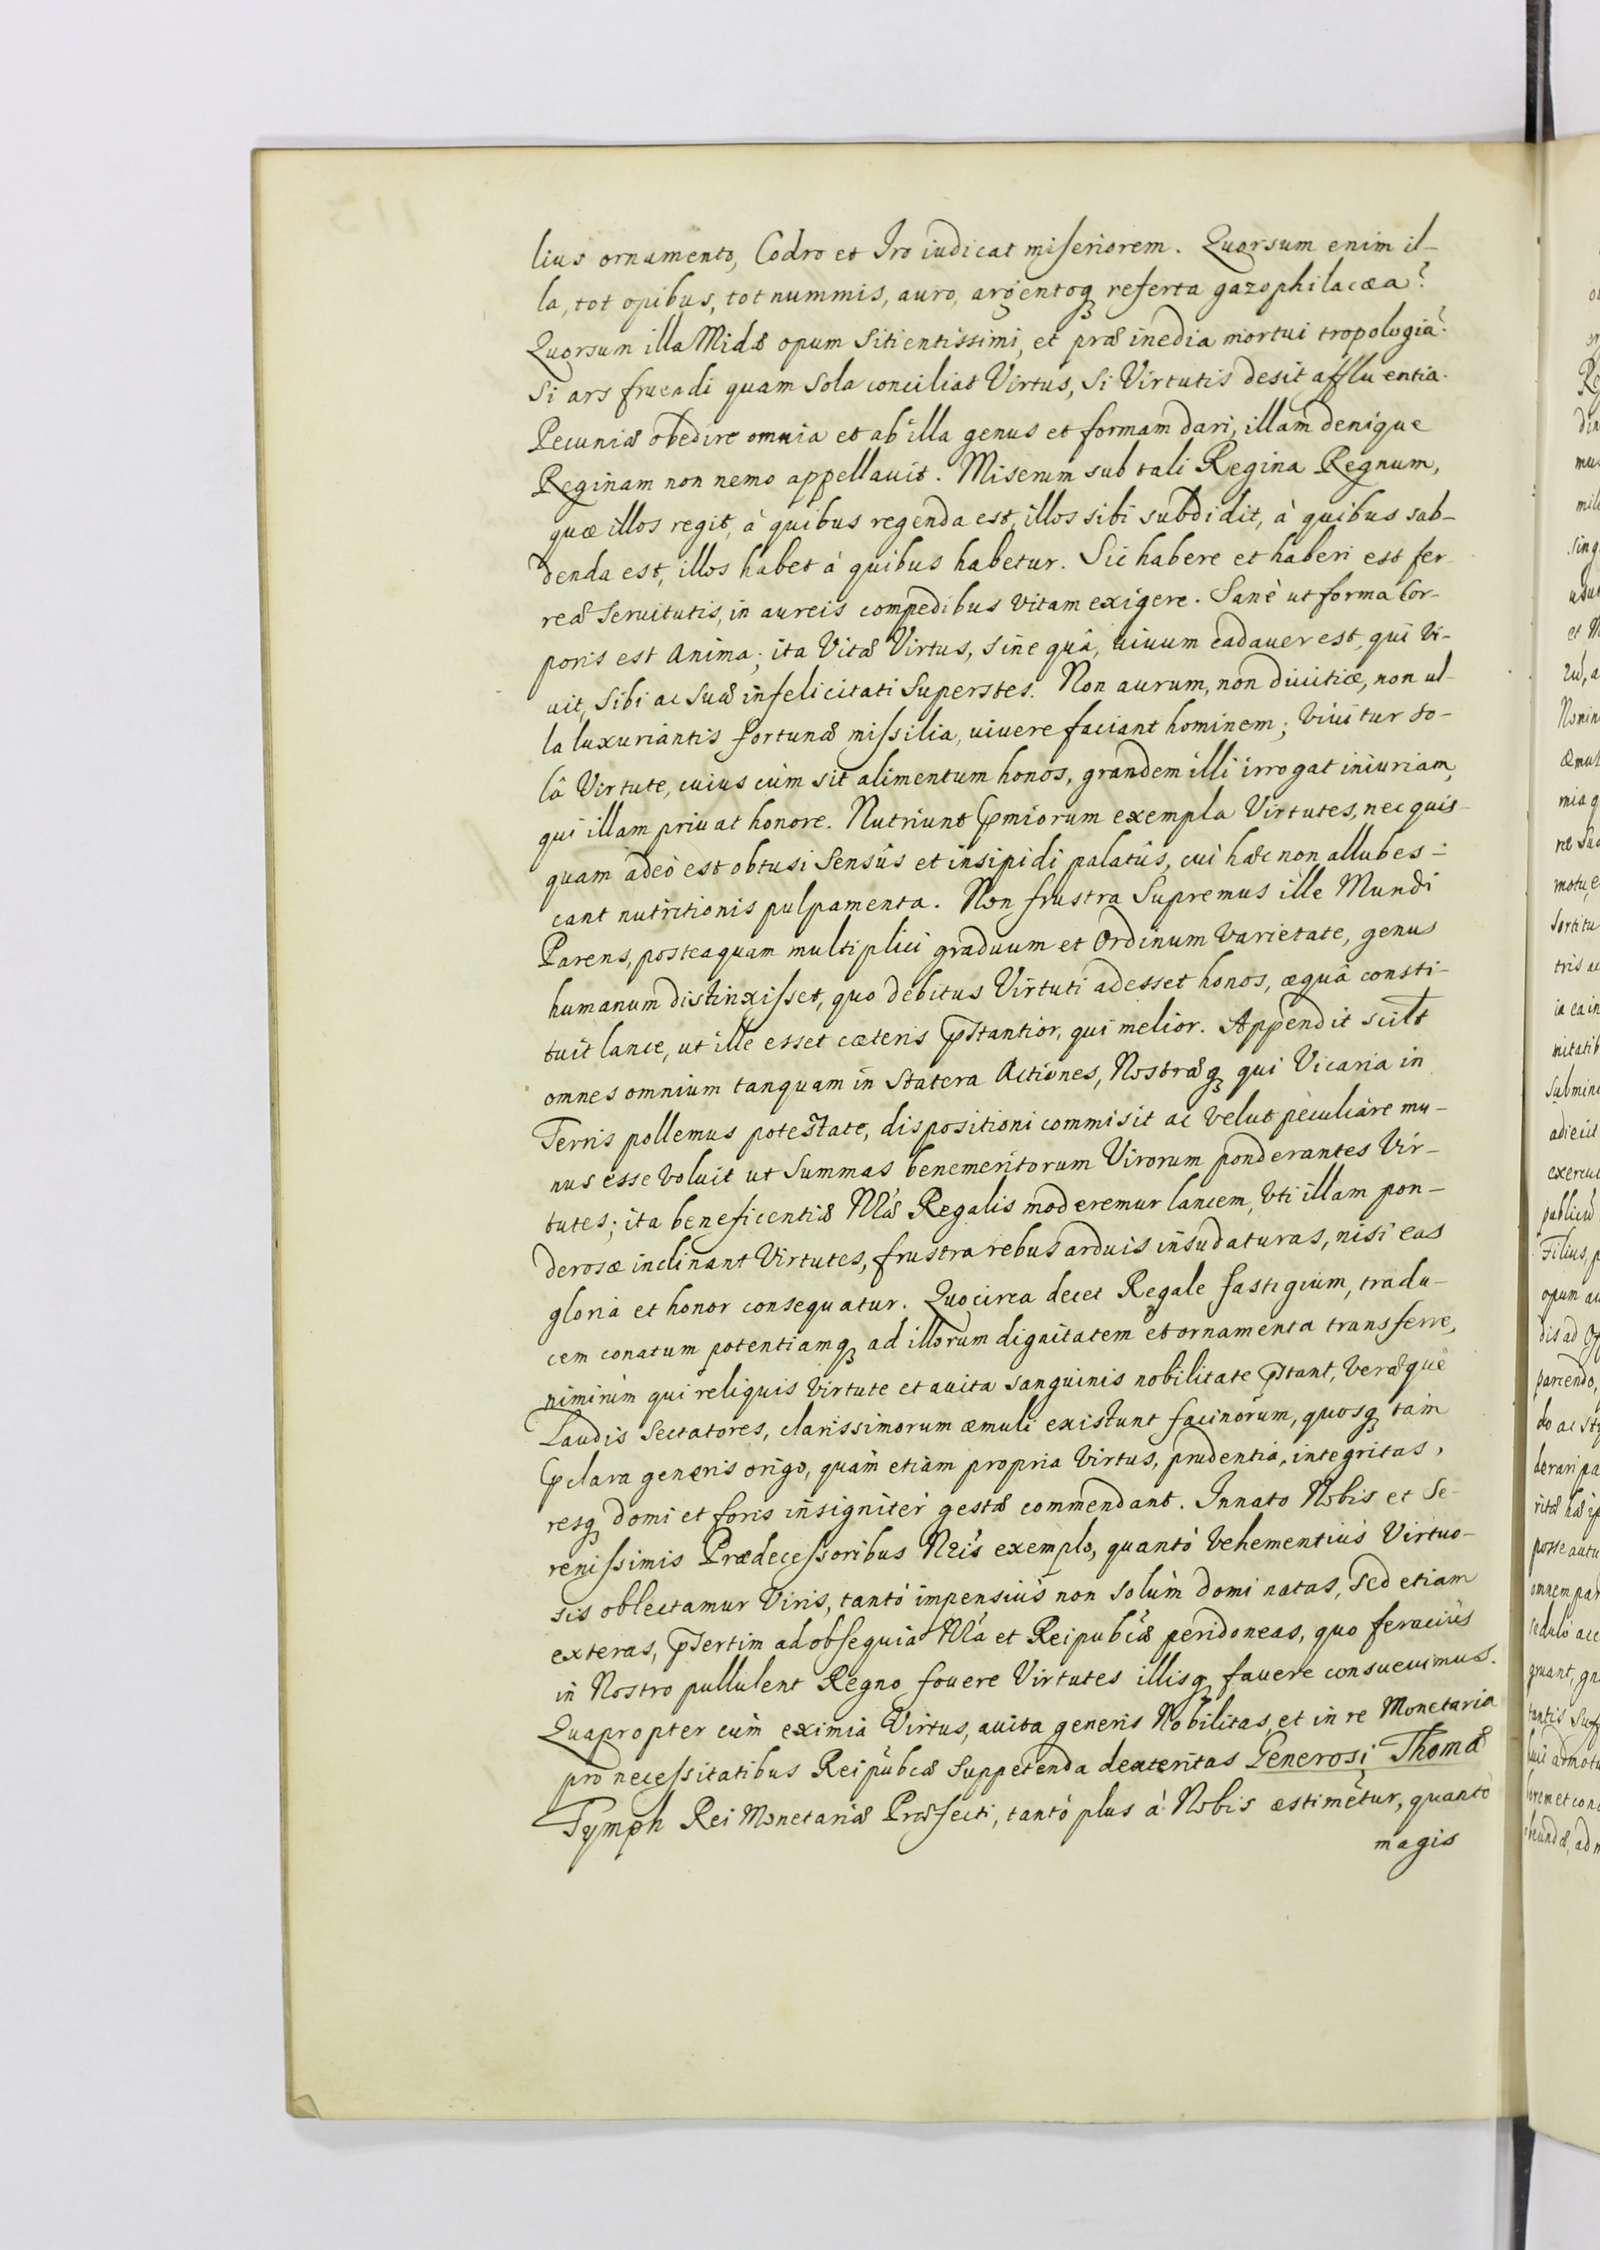 lius ornamento, Codro et Iro iudicat miseriorem. Quorsum enim il-
la, tot opibus, tot nummis, auro, argentoq; referta gazophilacæa?
Quorsum illa Midæ opum sitientissimi, et præ inedia mortui tropologia?
Si ars fruendi quam sola conciliat Virtus, si Virtutis desit affluentia.
Pecuniæ obedire omnia et ab illa genus et formam dari, illam denique
Reginam non nemo appellauit. Miserum sub tali Regina Regnum,
quæ illos regit, à quibus regenda est, illos sibi subdidit, à quibus sub-
denda est, illos habet à quibus habetur. Sic habere et haberi est fer-
reæ seruitutis, in aureis compedibus vitam exigere. Sanè ut forma Cor-
poris est Anima; ita Vitæ Virtus, sine quâ, uiuum cadauer est, qui vi-
uit, sibi ac suæ infelicitati superstes. Non aurum, non diuitiæ, non ul-
la luxuriantis fortunæ missilia, uiuere faciant hominem; viuitur so-
lâ Virtute, cuius cùm sit alimentum honos, grandem illi irrogat iniuriam,
qui illam priuat honore. Nutriunt pmiorum exempla Virtutes, nec quis-
quam adeò est obtusi sensûs et insipidi palatûs, cui hæc non allubes-
cant nutritionis pulpamenta. Non frustra Supremus ille Mundi
Parens, posteaquam multiplici graduum et Ordinum varietate, genus
humanum distinxisset, quo debitus Virtuti adesset honos, æquâ consti-
tuit lance, ut ille esset cæteris pstantior, qui melior. Appendit scilt
omnes omnium tanquam in statera Actiones, Nostræq; qui Vicaria in
Terris pollemus potestate, dispositioni commisit ac velut peculiare mu-
nus esse voluit ut summas benemeritorum Virorum ponderantes Vir-
tutes; ita beneficentiæ Nræ Regalis moderemur lancem, vti illam pon-
derosæ inclinant Virtutes, frustra rebus arduis insudaturas, nisi eas
gloria et honor consequatur. Quocirca decet Regale fastigium, tradu-
cem conatum potentiamq; ad illorum dignitatem et ornamenta transferre,
nimirùm qui reliquis virtute et auita sanguinis nobilitate pstant, veræque
Laudis sectatores, clarissimorum æmuli existunt facinorum, quosq; tàm
pclara generis origo, quàm etiam propria virtus, prudentia, integritas,
resq; domi et foris insigniter gestæ commendant. Innato Nobis et Se-
renissimis Prædecessoribus Nris exemplo, quantò vehementiùs Virtuo-
sis oblectamur Viris, tantò impensiùs non solùm domi natas, sed etiam
exteras, psertim ad obsequia Nra et Reipubcæ peridoneas, quo feraciùs
in Nostro pullulent Regno fouere Virtutes illisq; fauere consueuimus.
Quapropter cùm eximia Virtus, auita generis Nobilitas, et in re Monetaria
pro necessitatibus Reipubcæ suppetenda dexteritas Generosi Thomæ
Tymph Rei Monetariæ Præfecti, tantò plus à Nobis æstimetur, quantò
magis